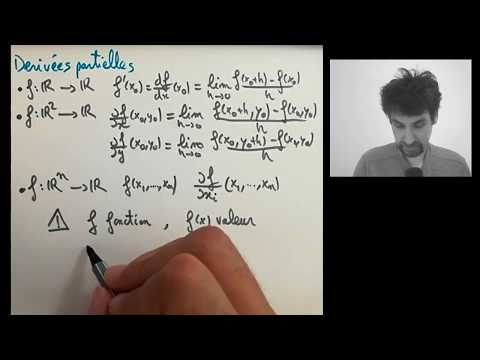 Dérivées partielles
• f: ℝ → ℝ f'(x₀) = df/dx (x₀) = lim h→0 f(x₀+h) - f(x₀) / h
• f: ℝ² → ℝ ∂f/∂x (x₀,y₀) = lim h→0 f(x₀+h, y₀) - f(x₀,y₀) / h
∂f/∂y (x₀,y₀) = lim h→0 f(x₀, y₀+h) - f(x₀,y₀) / h
• f: ℝⁿ → ℝ f(x₁,...,xₙ) ∂f/∂xᵢ (x₁,...,xₙ)
⚠ f fonction , f(x) valeur